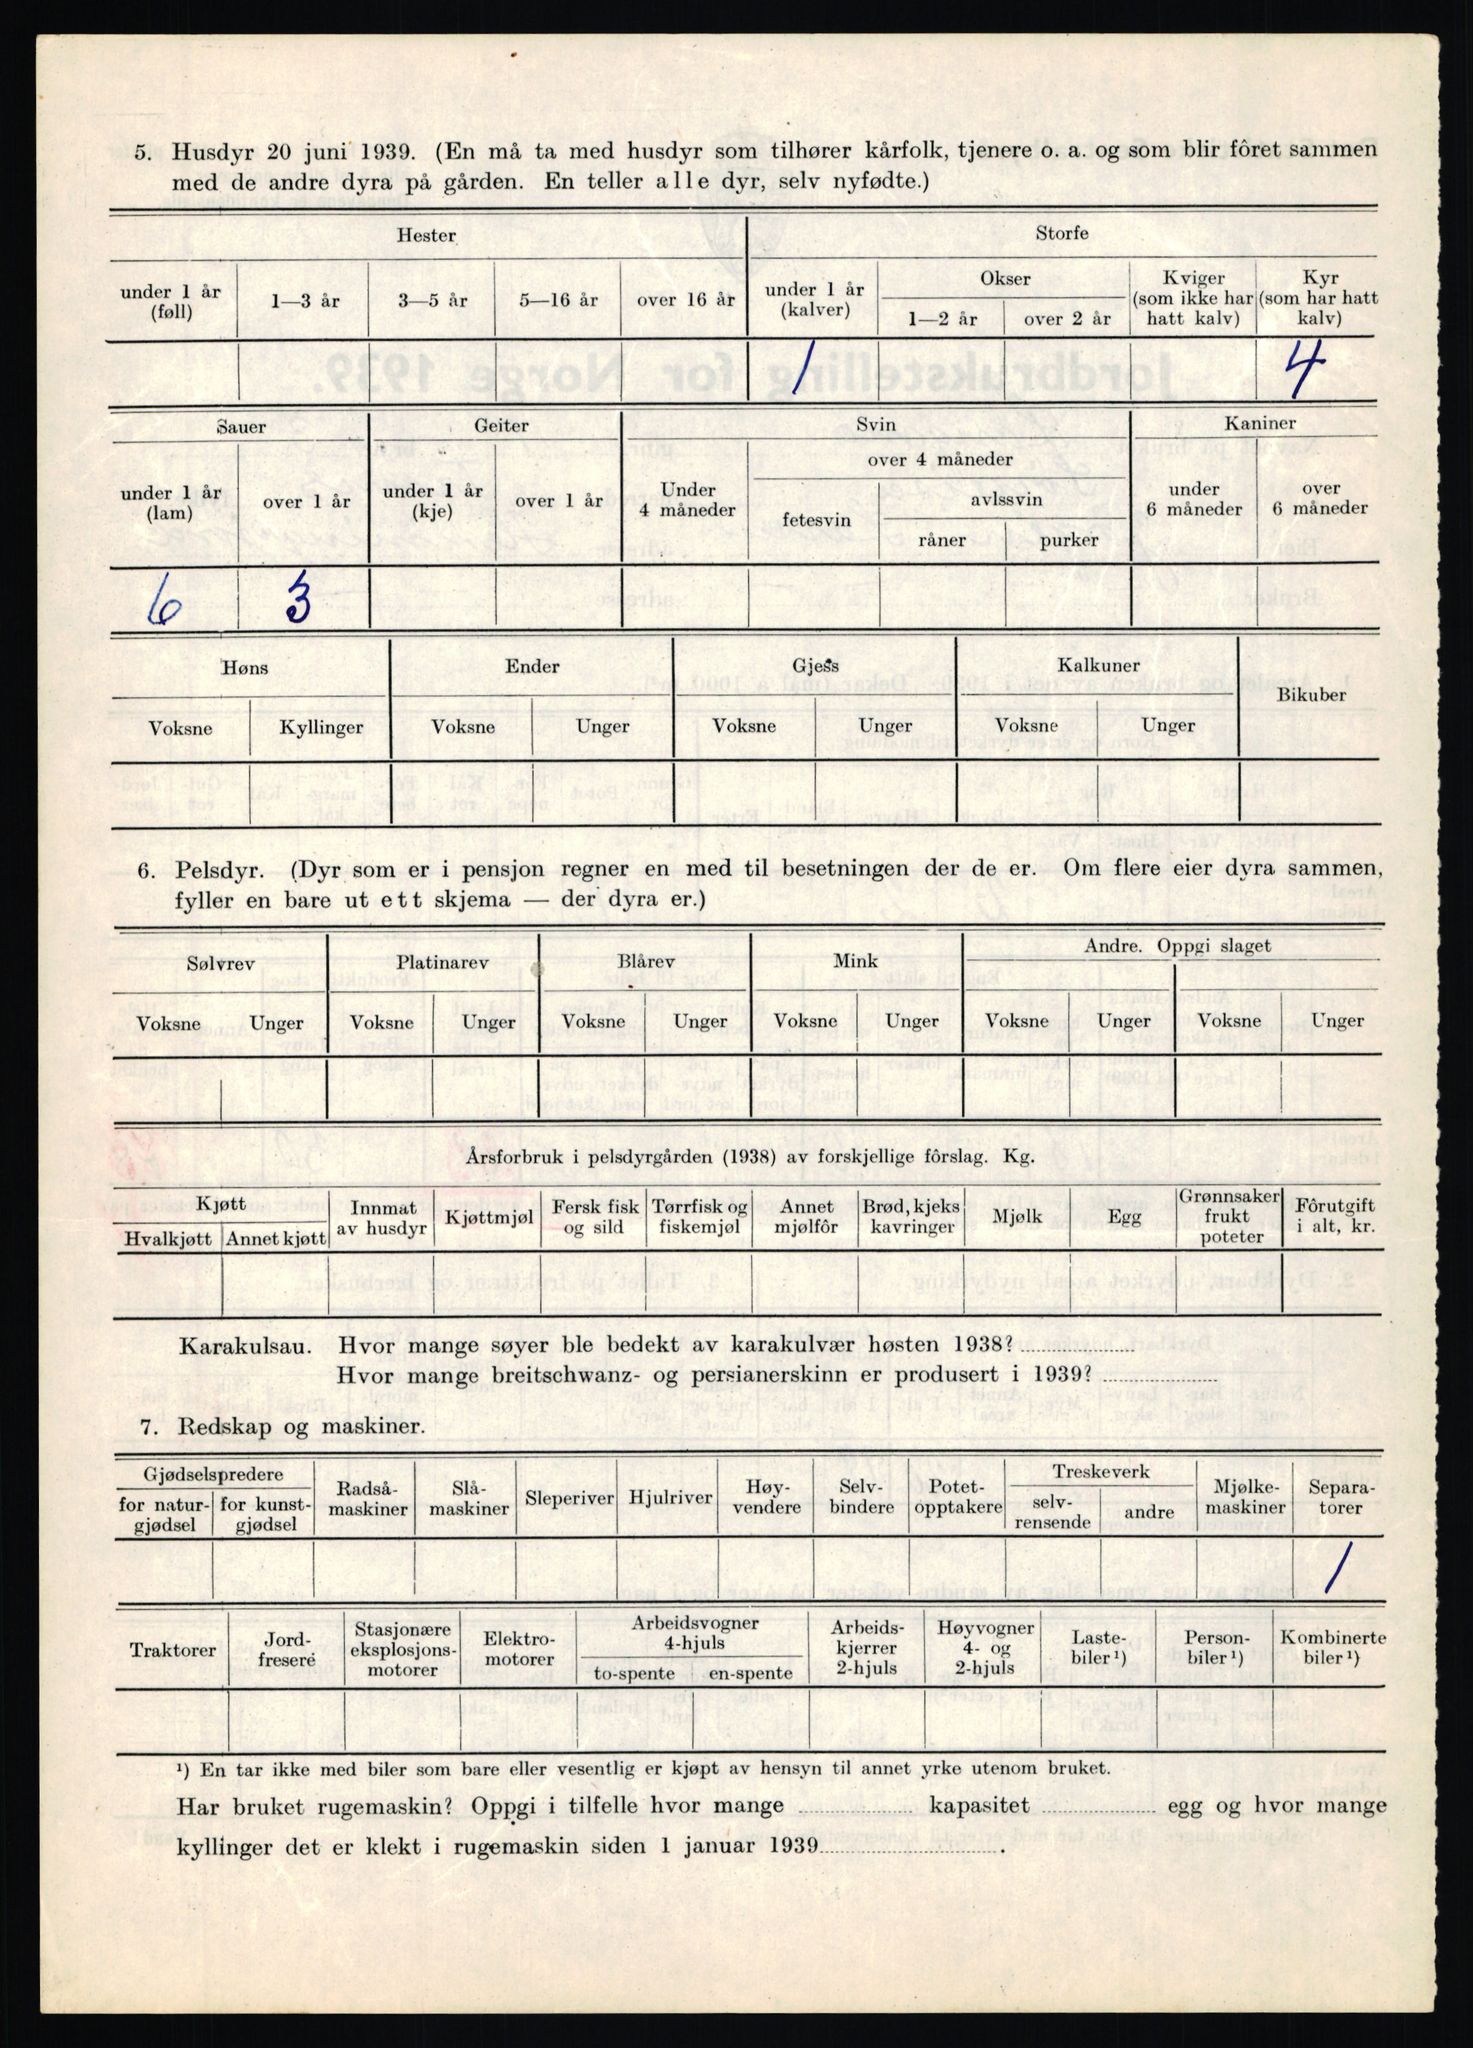 5. Husdyr 20 juni 1939. (En må ta med husdyr som tilhører kårfolk, tjenere o. a. og som blir fôret sammen
med de andre dyra på gården. En teller alle dyr, selv nyfødte.)
Hester Storfe
under 1 år (føll) 1—3 år 3—5 år 5—16 år over 16 år under 1 år (kalver) Okser Kviger (som ikke har hatt kalv) Kyr (som har hatt kalv)
1—2 år over 2 år
1 4
Sauer Geiter Svin Kaniner
under 1 år (lam) over 1 år under 1 år (kje) over 1 år Under 4 måneder over 4 måneder under 6 måneder over 6 måneder
fetesvin avlssvin
råner purker
6 3
Høns Ender Gjess Kalkuner Bikuber
Voksne Kyllinger Voksne Unger Voksne Unger Voksne Unger
6. Pelsdyr. (Dyr som er i pensjon regner en med til besetningen der de er. Om flere eier dyra sammen,
fyller en bare ut ett skjema — der dyra er.)
Sølvrev Platinarev Blårev Mink Andre. Oppgi slaget
Voksne Unger Voksne Unger Voksne Unger Voksne Unger Voksne Unger Voksne Unger
Årsforbruk i pelsdyrgården (1938) av forskjellige fôrslag. Kg.
Kjøtt Innmat av husdyr Kjøttmjøl Fersk fisk og sild Tørrfisk og fiskemjøl Annet mjølfôr Brød, kjeks kavringer Mjølk Egg Grønnsaker frukt poteter Fôrutgift i alt, kr.
Hvalkjøtt Annet kjøtt
Karakulsau. Hvor mange søyer ble bedekt av karakulvær høsten 1938?
Hvor mange breitschwanz- og persianerskinn er produsert i 1939?
7. Redskap og maskiner.
Gjødselspredere Radså-maskiner Slå-maskiner Sleperiver Hjulriver Høy-vendere Selv-bindere Potet-opptakere Treskeverk Mjølke-maskiner Separa-torer
for natur-gjødsel for kunst-gjødsel selv-rensende andre
1
Traktorer Jord-freseré Stasjonære eksplosjons-motorer Elektro-motorer Arbeidsvogner 4-hjuls Arbeids-kjerrer 2-hjuls Høyvogner 4- og 2-hjuls Laste-biler ¹) Person-biler ¹) Kombinerte biler ¹)
to-spente en-spente
¹) En tar ikke med biler som bare eller vesentlig er kjøpt av hensyn til annet yrke utenom bruket.
Har bruket rugemaskin? Oppgi i tilfelle hvor mange kapasitet egg og hvor mange
kyllinger det er klekt i rugemaskin siden 1 januar 1939 .